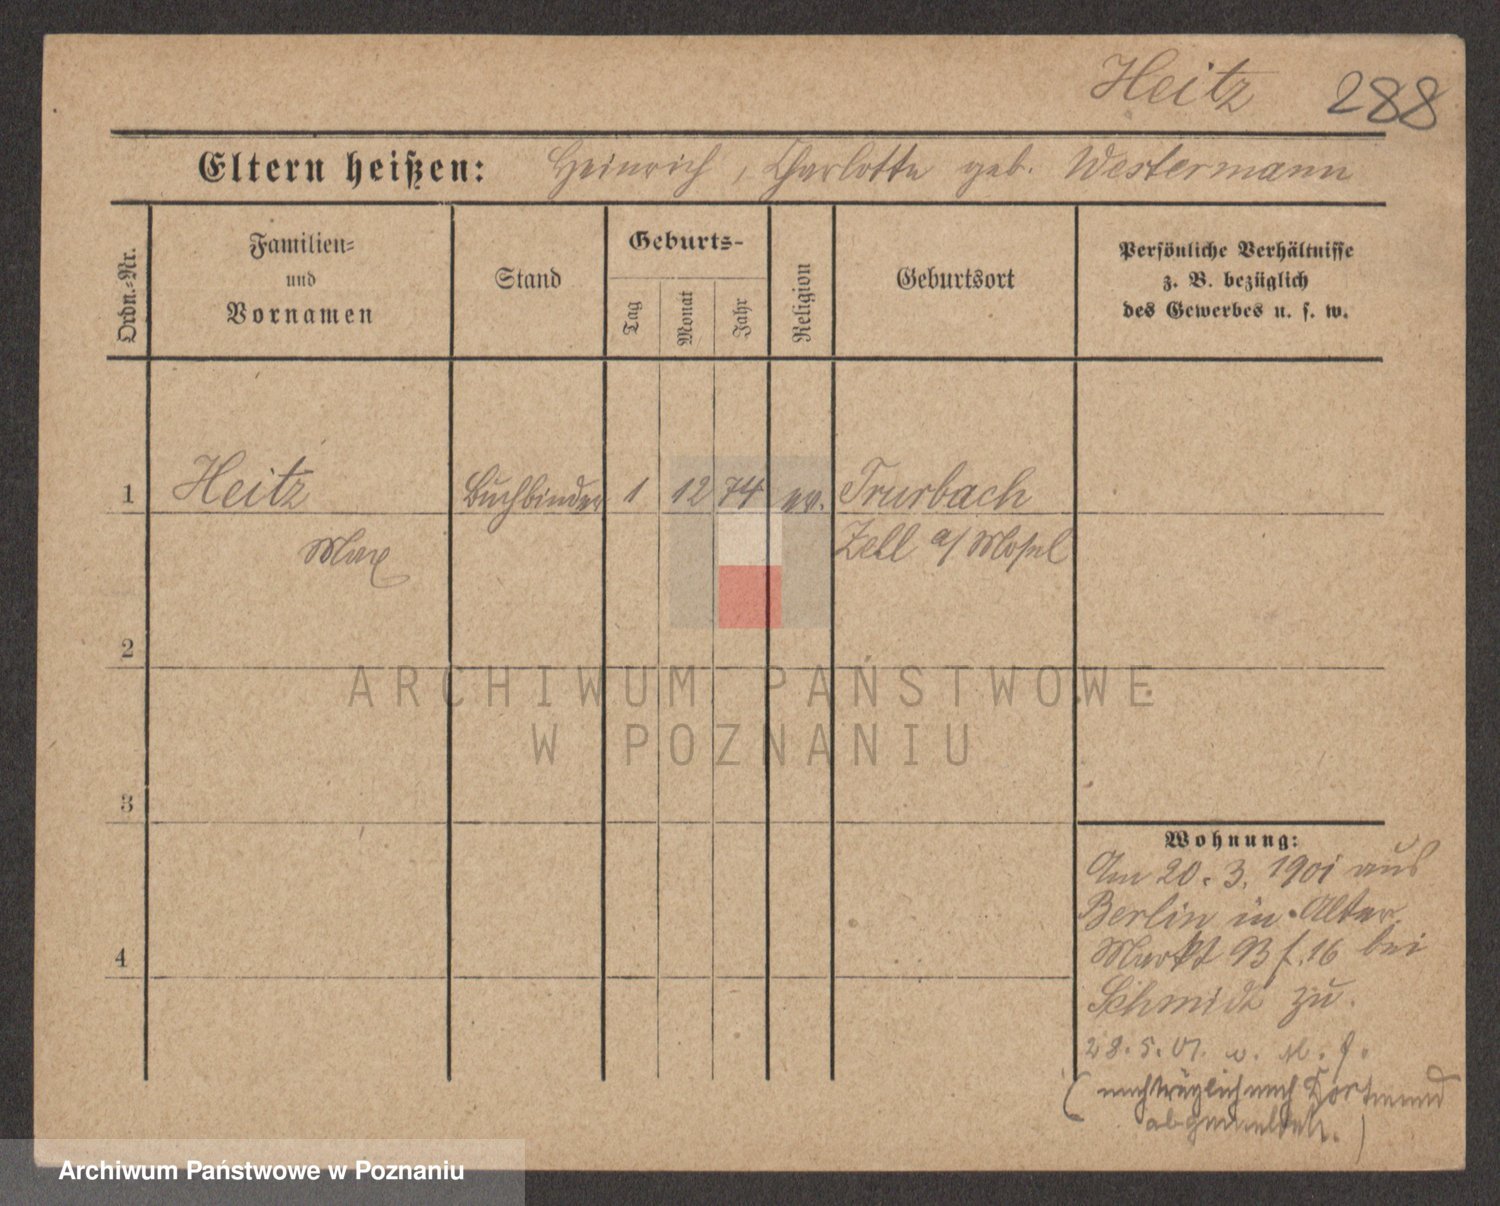 Heitz 288
Eltern heißen: Heinrich, Charlotte geb. Westermann
Ordn.-Nr. Familien- und Vornamen Stand Geburts- Tag Monat Jahr Religion Geburtsort Persönliche Verhältnisse z. B. bezüglich des Gewerbes u. s. w.
1 Heitz Buchbinder 1 12 74 ev. Trarbach
Max Zell a/Mosel
2
ARCHIWUM PAŃSTWOWE
W POZNANIU
3
Wohnung:
Am 20. 3. 1901 aus
Berlin in Alter
4
Markt 93 f. 16 bei
Schmidt zu.
28. 5. 01.
(nachträglich nach Dortmund
abgemeldet.)
Archiwum Państwowe w Poznaniu